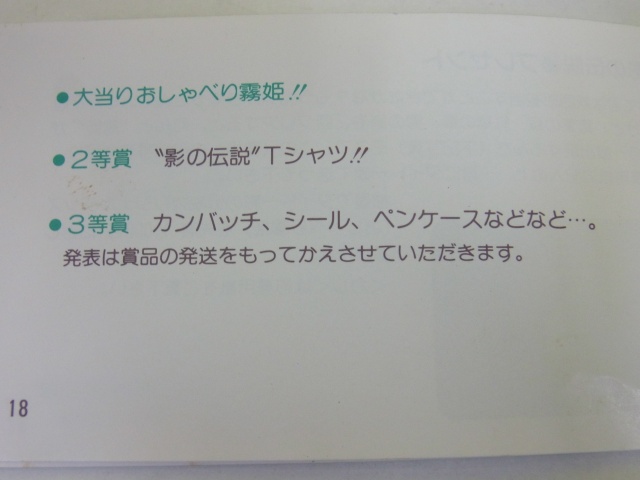 ●大当りおしゃべり霧姫!!
●2等賞 〝影の伝説〟Tシャツ!!
●3等賞 カンバッチ、シール、ペンケースなどなど…。
発表は賞品の発送をもってかえさせていただきます。
18